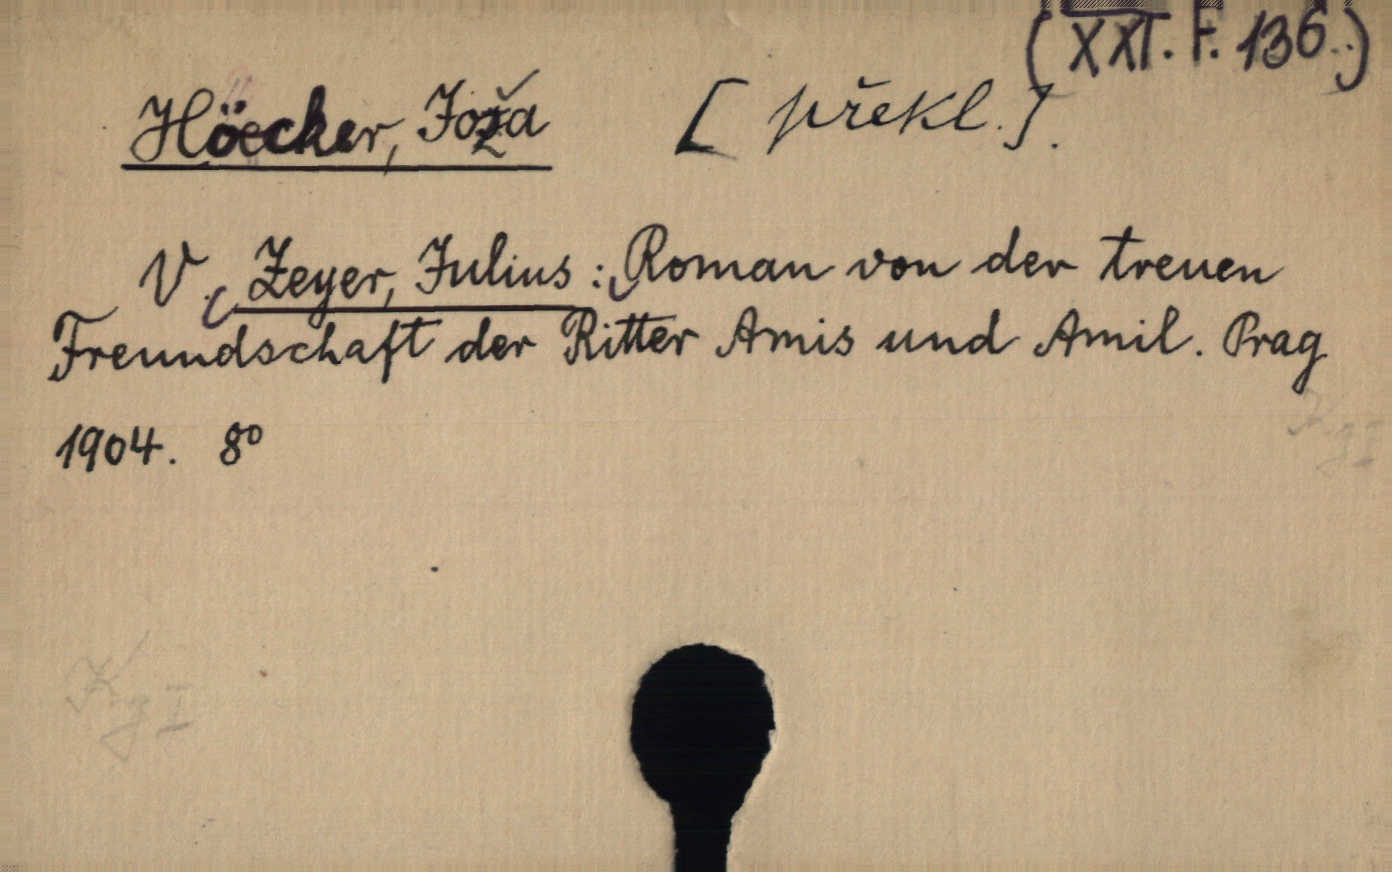 (XXI. F. 136.)
Höcker, Joža [překl.].
V. Zeyer, Julius: Roman von der treuen
Freundschaft der Ritter Amis und Amil. Prag
1904. 8°
Kg I